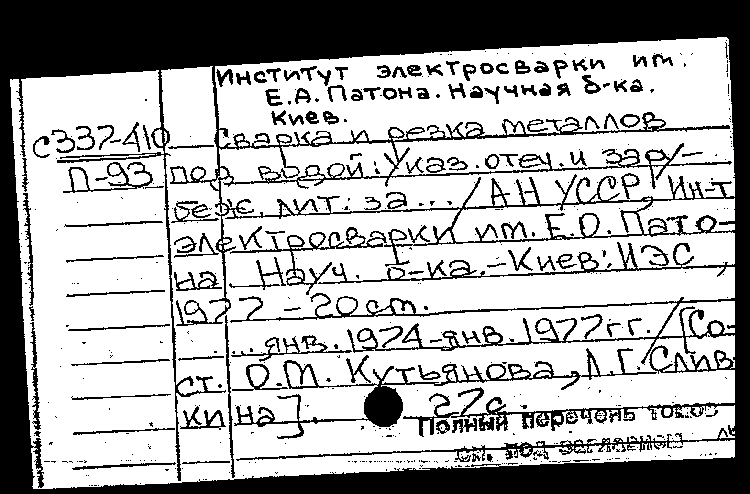 Институт электросварки им.
Е.А. Патона. Научная б-ка.
Киев.
С337-410 Сварка и резка металлов
П-93 под водой: Указ. отеч. и зару-
беж. лит. за ... / АН УССР, Ин-т
электросварки им. Е.О. Пато-
на. Науч. б-ка. - Киев: ИЭС,
1977 - 20 см.
... янв. 1974 - янв. 1977 г г. / [Со-
ст. О.М. Кутьянова, Л.Г. Слив-
кина]. 27с.
Полный перечень томов
см. под заглавием